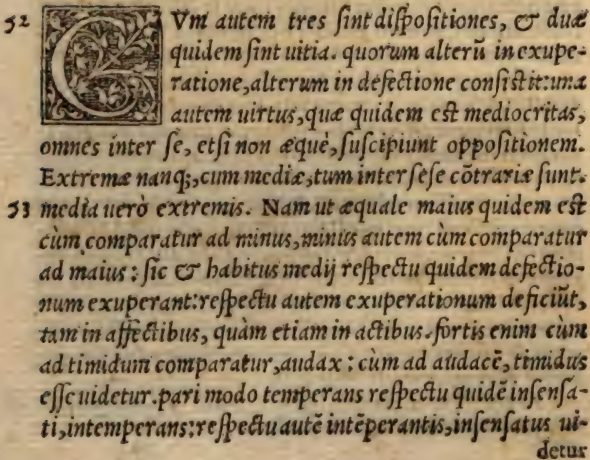 52 CVm autem tres ſint diſpoſitiones, & duæ
quidem ſint uitia. quorum alterũ in exupe-
ratione, alterum in defectione conſiſtit: una
autem uirtus, quæ quidem est mediocritas,
omnes inter ſe, etſi non æquè, ſuſcipiunt oppoſitionem.
Extremæ nanq;, cum mediæ, tum inter ſeſe cõtrariæ ſunt.
53 media uerò extremis. Nam ut æquale maius quidem est
cùm comparatur ad minus, minus autem cùm comparatur
ad maius: ſic & habitus medij reſpectu quidem defectio-
num exuperant: reſpectu autem exuperationum deficiũt,
tam in affectibus, quàm etiam in actibus. fortis enim cùm
ad timidum comparatur, audax: cùm ad audacẽ, timidus
eſſe uidetur. pari modo temperans reſpectu quidẽ inſenſa-
ti, intemperans: reſpectu autẽ intẽperantis, inſenſatus ui-
detur